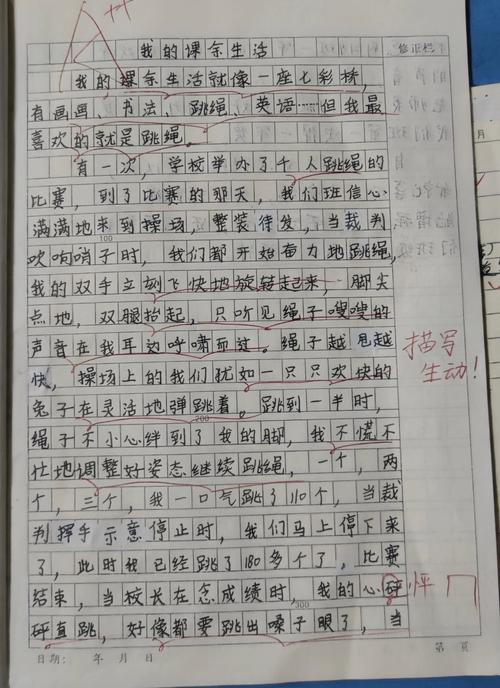 A++
我的课余生活
修正栏
我的课余生活就像一座七彩桥，
有画画、书法、跳绳、英语……但我最
喜欢的就是跳绳。
有一次，学校举办了千人跳绳的
比赛，到了比赛的那天，我们班信心
满满地来到操场，整装待发，当裁判
100
吹响哨子时，我们都开始奋力地跳绳，
我的双手立刻飞快地旋转起来，脚尖
点地，双腿抬起，只听见绳子嗖嗖的
声音在我耳边呼啸而过。绳子越甩越
快，操场上的我们犹如一只只欢快的
描写
生动！
兔子在灵活地弹跳着。跳到一半时，
200
绳子不小心绊到了我的脚，我不慌不
忙地调整好姿态继续跳绳，一个，两
个，三个，我一口气跳了110个，当裁
判挥手示意停止时，我们马上停下来
了，此时我已经跳了180多个了，比赛
结束，当校长在念成绩时，我的心砰
怦
300
砰直跳，好像都要跳出嗓子眼了，当
日期： 年 月 日
第 页